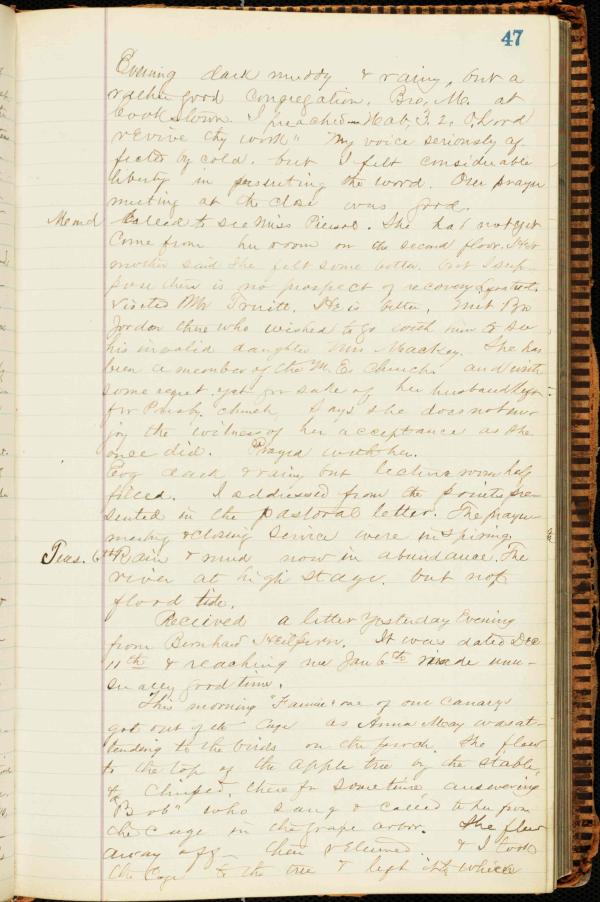 47
Evening dark muddy & rainy, but a
rather good congregation. Bro. Mc. at
Cookstown. I preached Hab. 3, 2, O Lord
revive thy work" My voice seriously af
fected by cold. but I felt considerable
liberty in presenting the word. Our prayer
meeting at the close was good.
Mond Called to see Miss . She had not yet
come from her room on the second floor. Her
mother said she felt some better. but I sup-
pose there is no prospect of recovery.
Visited Mr Truitt. He is better. Met Bro
Jordon there who wished to go with him to see
his invalid daughter Mrs Mackey. She has
been a member of the M. E. Church and with
some regret. yet for sake of her husband left
for Presby. church. Says she does not en-
joy the witness of her acceptance as she
once did. Prayed with her.
Evg dark & rainy but lecture room half
filled. I addressed from the points pre-
sented in the pastoral letter. The prayer
meeting & closing service were inspiring
Tues. 6th Rain & mud now in abundance. The
river at high stage. but not
flood tide.
Received a letter Yesterday Evening
from Bernhard . It was dated Dec
11th & reaching me Jan 6th made unu-
sually good time.
This morning "Fannie" one of our canarys
got out of the Cage as Anna May was at-
tending to the birds on the porch. She flew
to the top of the apple tree by the stable,
& chirped there for sometime, answering
"Bob" who sang & called to her from
the cage in the grape arbor. She flew
away off then returned. & I took
the cage to the tree & left it while